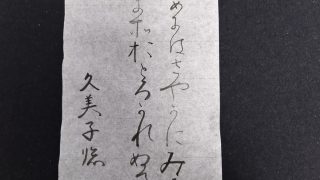 めにはさやかにみ
おとろかれぬ
久美子臨